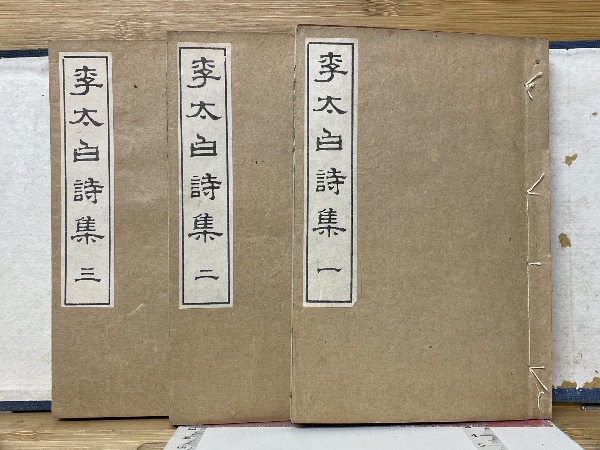 李太白詩集 一
李太白詩集 二
李太白詩集 三